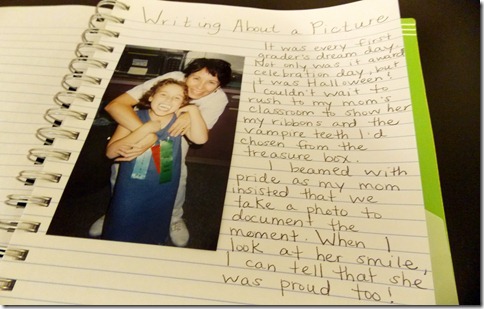 Writing About a Picture
It was every first
grader's dream day.
Not only was it award
celebration day, but
it was Halloween!
I couldn't wait to
rush to my mom's
classroom to show her
my ribbons and the
vampire teeth I'd
chosen from the
treasure box.
I beamed with
pride as my mom
insisted that we
take a photo to
document the
moment. When I
look at her smile,
I can tell that she
was proud too!